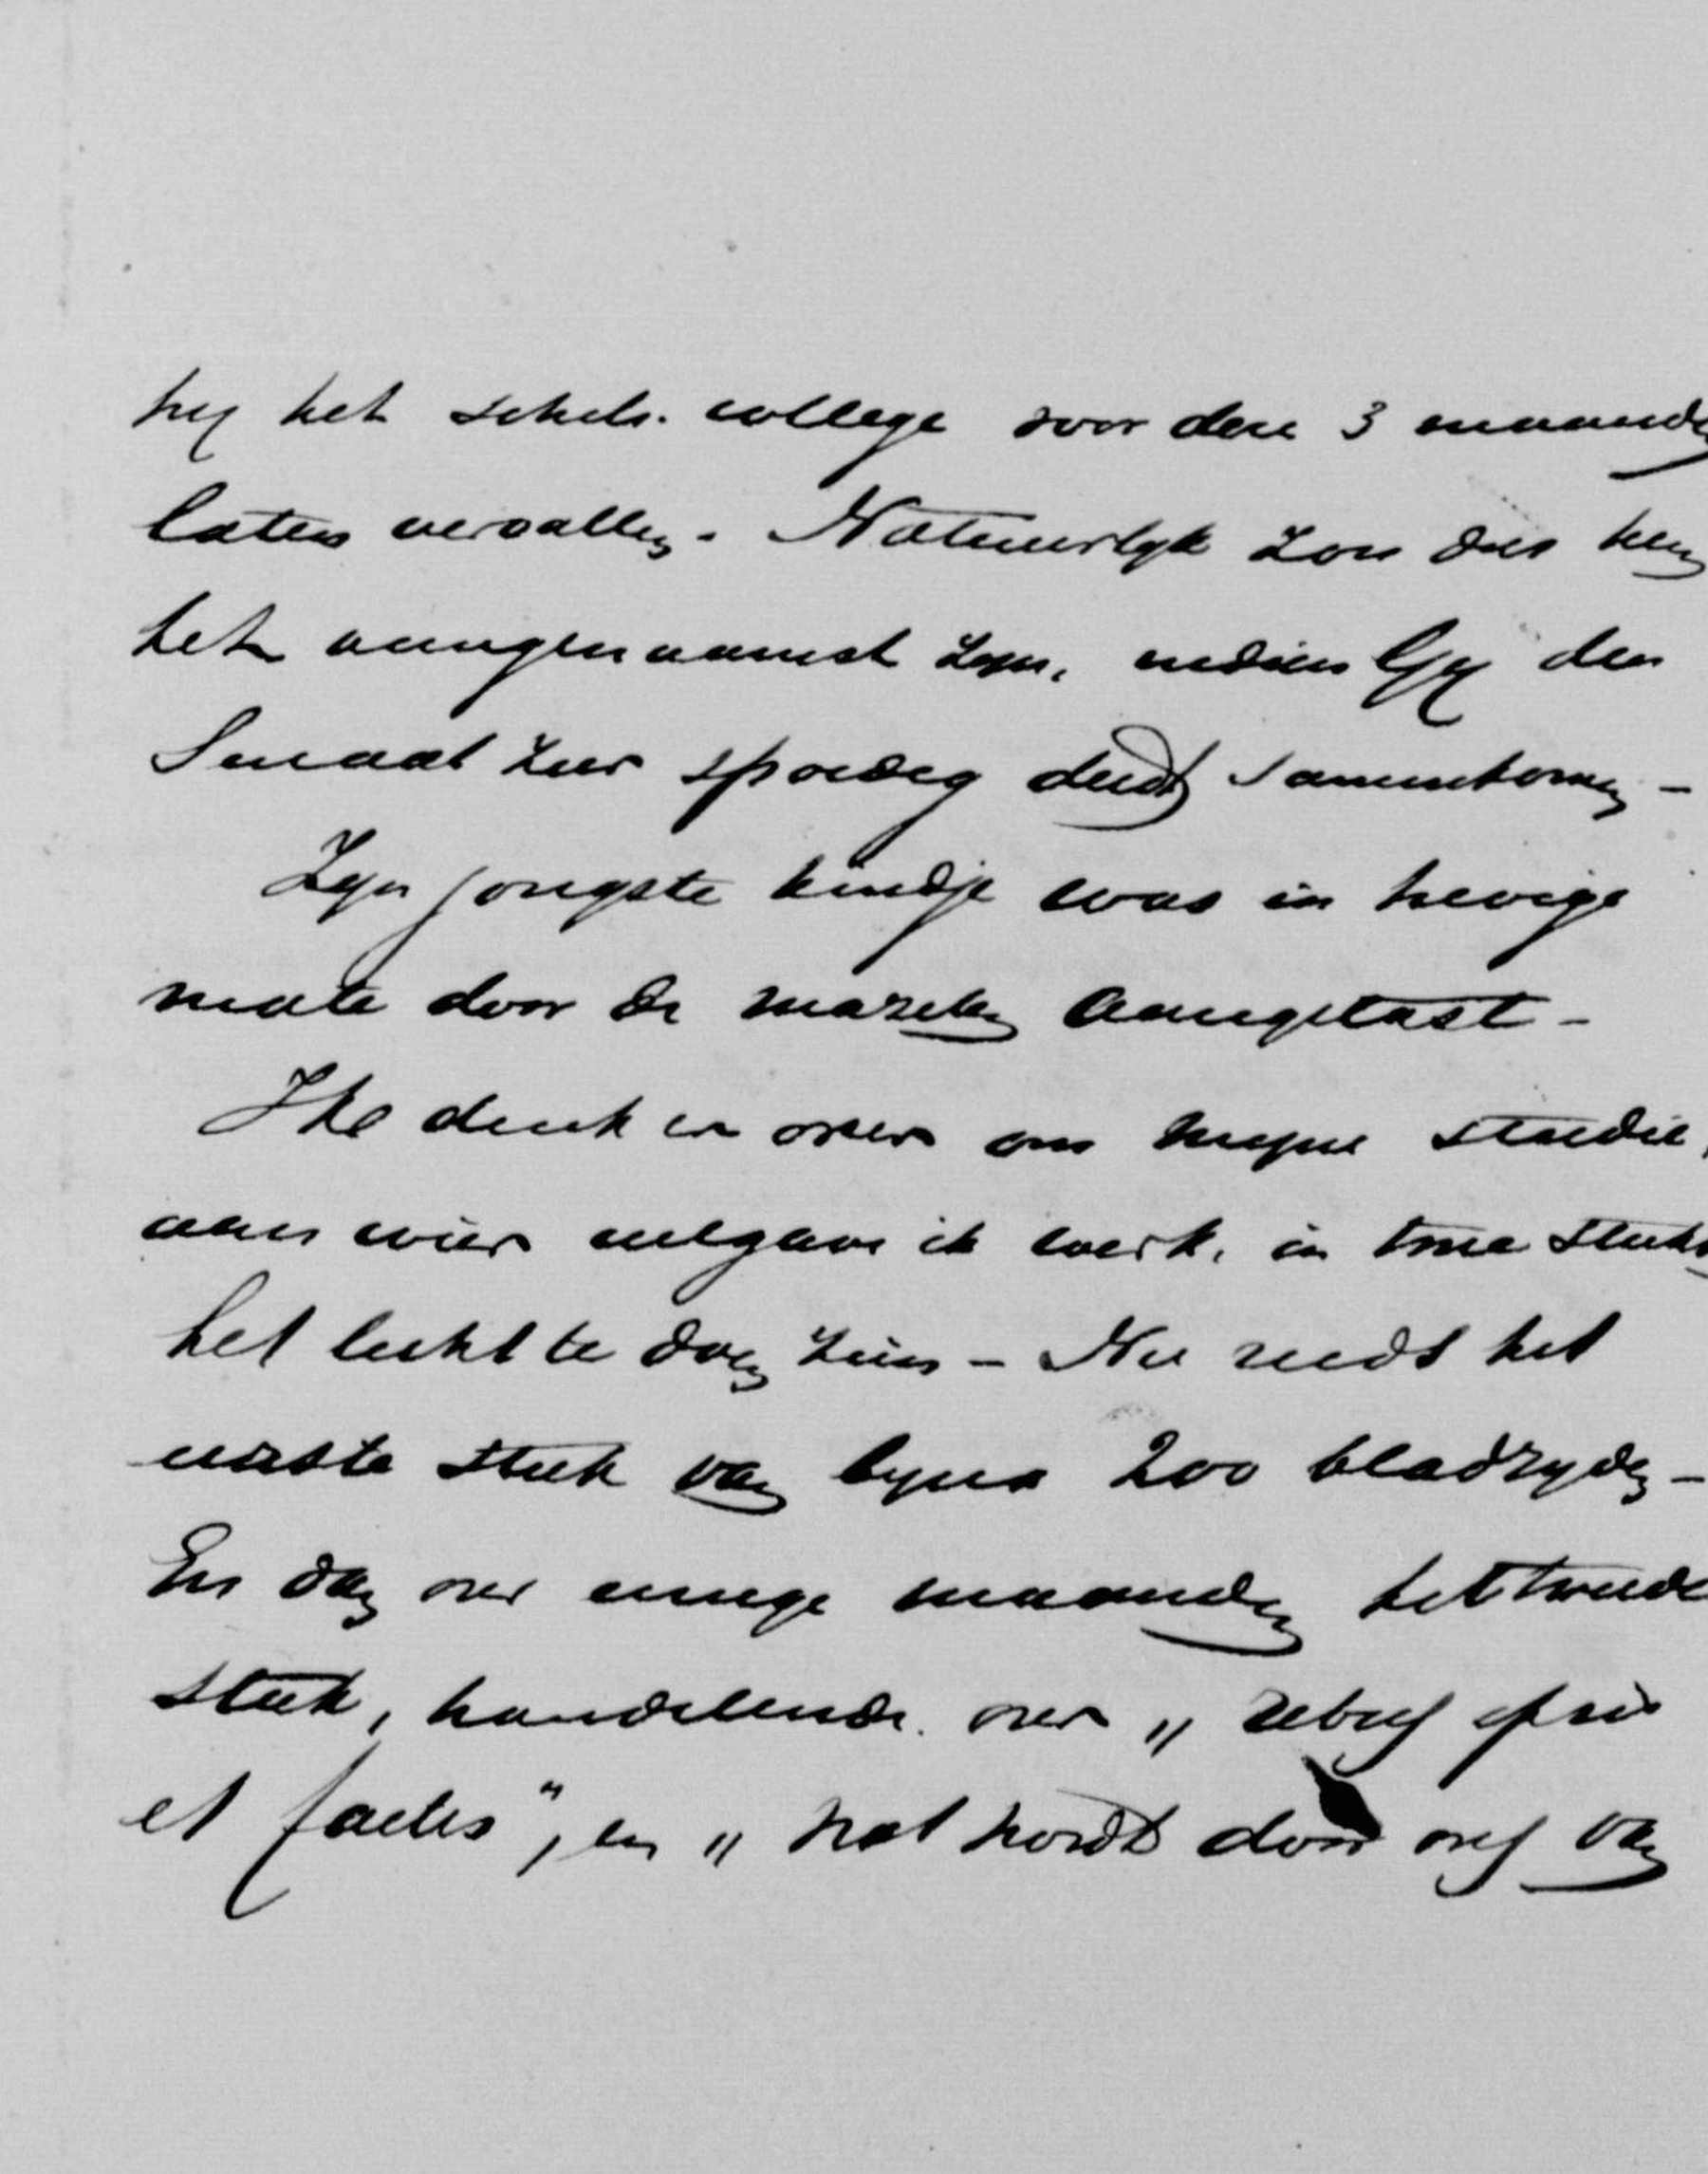 hij het schei. college voor deze 3 maanden
laten vervallen. Natuurlijk zou dus hem
het aangenaamst zijn, indien Gij den
Senaat zeer spoedig deedt samenkomen -
Zijn jongste kindje was in hevige
mate door de mazelen aangetast -
Ik denk er over om mijne studie,
aan wier uitgave ik werk, in twee stukken
het licht te doen zien - Nu reeds het
eerste stuk van bijna 200 bladzijden -
En dan over eenige maanden het tweede
stuk, handelende over „ rebus ipsis
et factis", en „ het